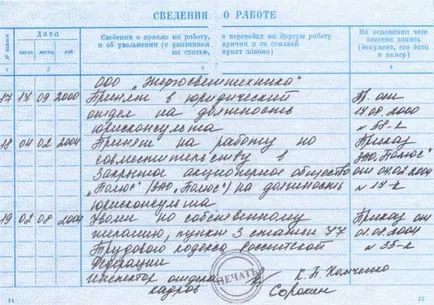 СВЕДЕНИЯ О РАБОТЕ
Дата
число месяц год
Сведения о приеме на работу, о переводах на другую работу
и об увольнении (с указанием причин и со ссылкой
на статью, пункт закона)
На основании чего
внесена запись
(документ, его дата
и номер)
1 2 3 4
ООО „Энергосветтехника"
17 17 09 2000 Принят в юридический Пр. от
отдел на должность 17.08.2000
юрисконсульта № 58-к
18 04 02 2004 Принят на работу по Приказ
совместительству в ЗАО „Полюс"
Закрытое акционерное общество от 04.02.2004
„Полюс" (ЗАО „Полюс") на должность № 17-к
юрисконсульта
19 02 08 2004 Уволен по собственному Приказ от
желанию, пункт 3 статьи 77 01.08.2004
Трудового кодекса Российской № 35-к
Федерации
Инспектор отдела
кадров
ПЕЧАТЬ
Сорокин
14 15